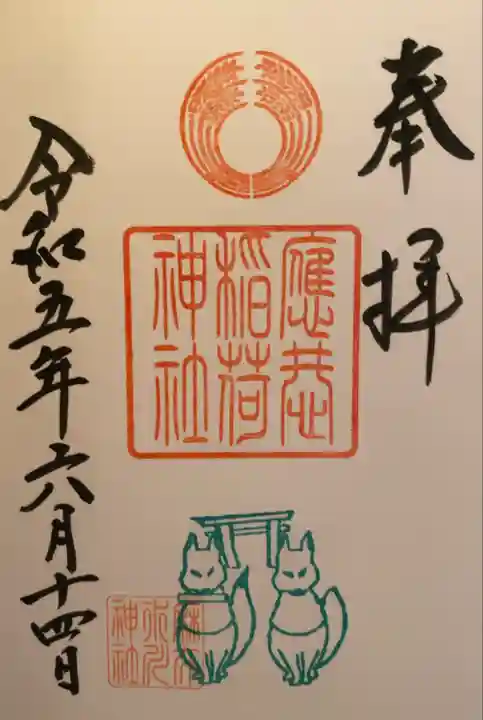 奉拝
應恭
稲荷
神社
氷川
神社
令和五年六月十四日